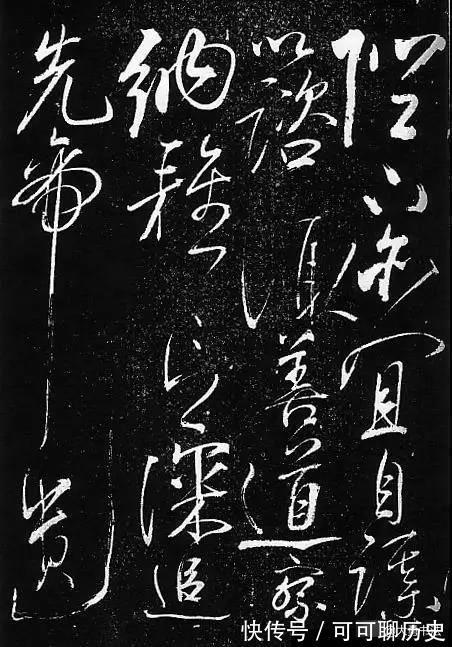 陛下亦宜自謀
以諮諏善道察
納雅言深追
先帝遺
快传号 / 可可聊历史